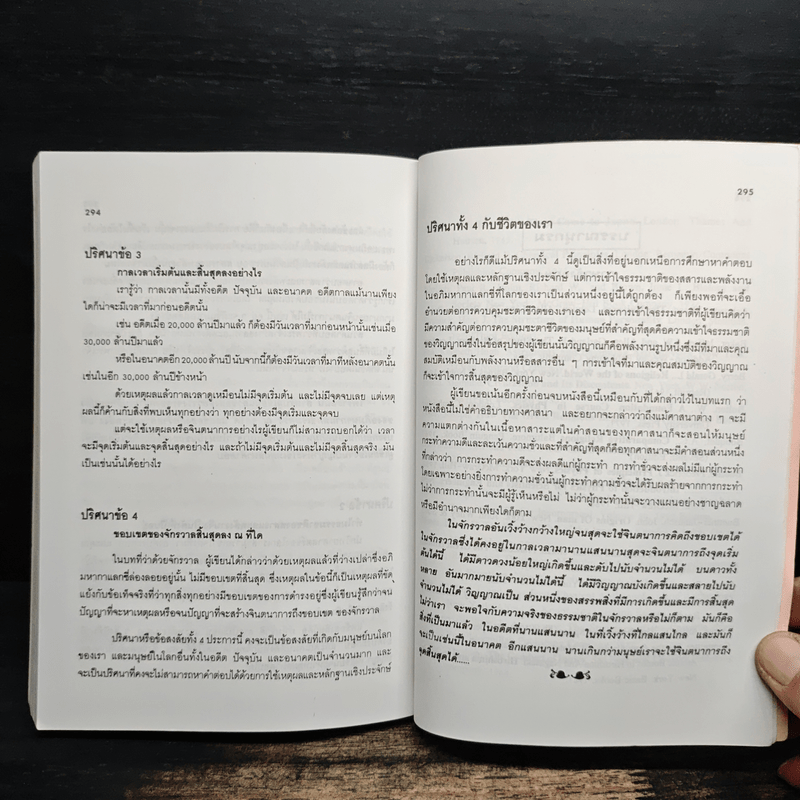 294
ปริศนาข้อ 3
กาลเวลาเริ่มต้นและสิ้นสุดลงอย่างไร
เรารู้ว่า กาลเวลานั้นมีทั้งอดีต ปัจจุบัน และอนาคต อดีตกาลแม้นานเพียง
ใดก็น่าจะมีเวลาที่มาก่อนอดีตนั้น
เช่น อดีตเมื่อ 20,000 ล้านปีมาแล้ว ก็ต้องมีวันเวลาที่มาก่อนหน้านั้นเช่นเมื่อ
30,000 ล้านปีมาแล้ว
หรือในอนาคตอีก 20,000 ล้านปี นับจากนี้ก็ต้องมีวันเวลาที่มาทีหลังอนาคตนั้น
เช่นในอีก 30,000 ล้านปีข้างหน้า
ด้วยเหตุผลแล้วกาลเวลาดูเหมือนไม่มีจุดเริ่มต้น และไม่มีจุดจบเลย แต่เหตุ
ผลนี้ก็ค้านกับสิ่งที่พบเห็นทุกอย่างว่า ทุกอย่างต้องมีจุดเริ่มและจุดจบ
แต่จะใช้เหตุผลหรือจินตนาการอย่างไรผู้เขียนก็ไม่สามารถบอกได้ว่า เวลา
จะมีจุดเริ่มและจุดสิ้นสุดอย่างไร และถ้าไม่มีจุดเริ่มต้นและไม่มีสิ้นสุดจริง มัน
เป็นเช่นนั้นได้อย่างไร
ปริศนาข้อ 4
ขอบเขตของจักรวาลสิ้นสุดลง ณ ที่ใด
ในบทที่ว่าด้วยจักรวาล ผู้เขียนได้กล่าวว่าด้วยเหตุผลแล้วที่ว่างเปล่าซึ่งอภิ
มหากาแลกซี่ล่องลอยอยู่นั้น ไม่มีขอบเขตที่สิ้นสุด ซึ่งเหตุผลในข้อนี้ก็เป็นเหตุผลที่ขัด
แย้งกับข้อเท็จจริงที่ว่าทุกสิ่งทุกอย่างมีขอบเขตของการดำรงอยู่ซึ่งผู้เขียนรู้สึกว่าจน
ปัญญาที่จะหาเหตุผลหรือจนปัญญาที่จะสร้างจินตนาการถึงขอบเขต ของจักรวาล
ปริศนาหรือข้อสงสัยทั้ง 4 ประการนี้ คงจะเป็นข้อสงสัยที่เกิดกับมนุษย์บนโลก
ของเรา และมนุษย์ในโลกอื่นทั้งในอดีต ปัจจุบัน และอนาคตเป็นจำนวนมาก และ
จะเป็นปริศนาที่คงจะไม่สามารถหาคำตอบได้ด้วยการใช้เหตุผลและหลักฐานเชิงประจักษ์
295
ปริศนาทั้ง 4 กับชีวิตของเรา
อย่างไรก็ดีแม้ปริศนาทั้ง 4 นี้ดูเป็นสิ่งที่อยู่นอกเหนือการศึกษาหาคำตอบ
โดยใช้เหตุผลและหลักฐานเชิงประจักษ์ แต่การเข้าใจธรรมชาติของสสารและพลังงาน
ในอภิมหากาแลกซี่ที่โลกของเราเป็นส่วนหนึ่งอยู่นี้ได้ถูกต้อง ก็เพียงพอที่จะเอื้อ
อำนวยต่อการควบคุมชะตาชีวิตของเราเอง และการเข้าใจธรรมชาติที่ผู้เขียนคิดว่า
มีความสำคัญต่อการควบคุมชะตาชีวิตของมนุษย์ที่สำคัญที่สุดคือความเข้าใจธรรมชาติ
ของวิญญาณซึ่งในข้อสรุปของผู้เขียนนั้นวิญญาณก็คือพลังงานรูปหนึ่งซึ่งมีที่มาและคุณ
สมบัติเหมือนกับพลังงานหรือสสารอื่น ๆ การเข้าใจที่มาและคุณสมบัติของวิญญาณ
ก็จะเข้าใจการสิ้นสุดของวิญญาณ
ผู้เขียนขอเน้นอีกครั้งก่อนจบหนังสือนี้เหมือนกับที่ได้กล่าวไว้ในบทแรก ว่า
หนังสือนี้ไม่ใช่คำอธิบายทางศาสนา และอยากจะกล่าวว่าถึงแม้ศาสนาต่าง ๆ จะมี
ความแตกต่างกันในเนื้อหาสาระแต่ในคำสอนของทุกศาสนาก็จะสอนให้มนุษย์
กระทำความดีและละเว้นความชั่วและที่สำคัญที่สุดก็คือทุกศาสนาจะมีคำสอนส่วนหนึ่ง
ที่กล่าวว่า การกระทำความดีจะส่งผลดีแก่ผู้กระทำ การทำชั่วจะส่งผลไม่มีแก่ผู้กระทำ
โดยเฉพาะอย่างยิ่งการทำความชั่วนั้นผู้กระทำความชั่วจะได้รับผลร้ายจากการกระทำ
ไม่ว่าการกระทำนั้นจะมีผู้รู้เห็นหรือไม่ ไม่ว่าผู้กระทำนั้นจะวางแผนอย่างชาญฉลาด
หรือมีอำนาจมากเพียงใดก็ตาม
ในจักรวาลอันเวิ้งว้างกว้างใหญ่จนสุดจะใช้จินตนาการคิดถึงขอบเขตได้
ในจักรวาลซึ่งได้คงอยู่ในกาลเวลามานานแสนนานสุดจะจินตนาการถึงจุดเริ่ม
ต้นได้นี้ ได้มีดาวดวงน้อยใหญ่เกิดขึ้นและดับไปนับจำนวนไม่ได้ บนดาวทั้ง
หลาย อันมากมายนับจำนวนไม่ได้นี้ ได้มีวิญญาณบังเกิดขึ้นและสลายไปนับ
จำนวนไม่ได้ วิญญาณเป็น ส่วนหนึ่งของสรรพสิ่งที่มีการเกิดขึ้นและมีการสิ้นสุด
ไม่ว่าเรา จะพอใจกับความจริงของธรรมชาติในจักรวาลหรือไม่ก็ตาม มันก็คือ
สิ่งที่เป็นมาแล้ว ในอดีตที่นานแสนนาน ในที่เวิ้งว้างที่ไกลแสนไกล และมันก็
จะเป็นเช่นนี้ในอนาคต อีกแสนนาน นานเกินกว่ามนุษย์เราจะใช้จินตนาการถึง
จุดสิ้นสุดได้.....